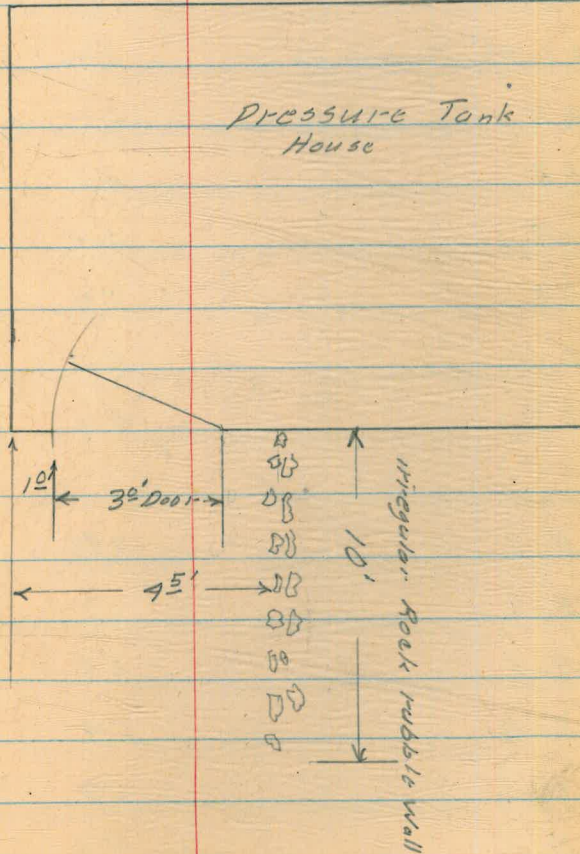 Pressure Tank
House
1º'
3º' Door
4⁵'
10'
irregular Rock rubble Wall